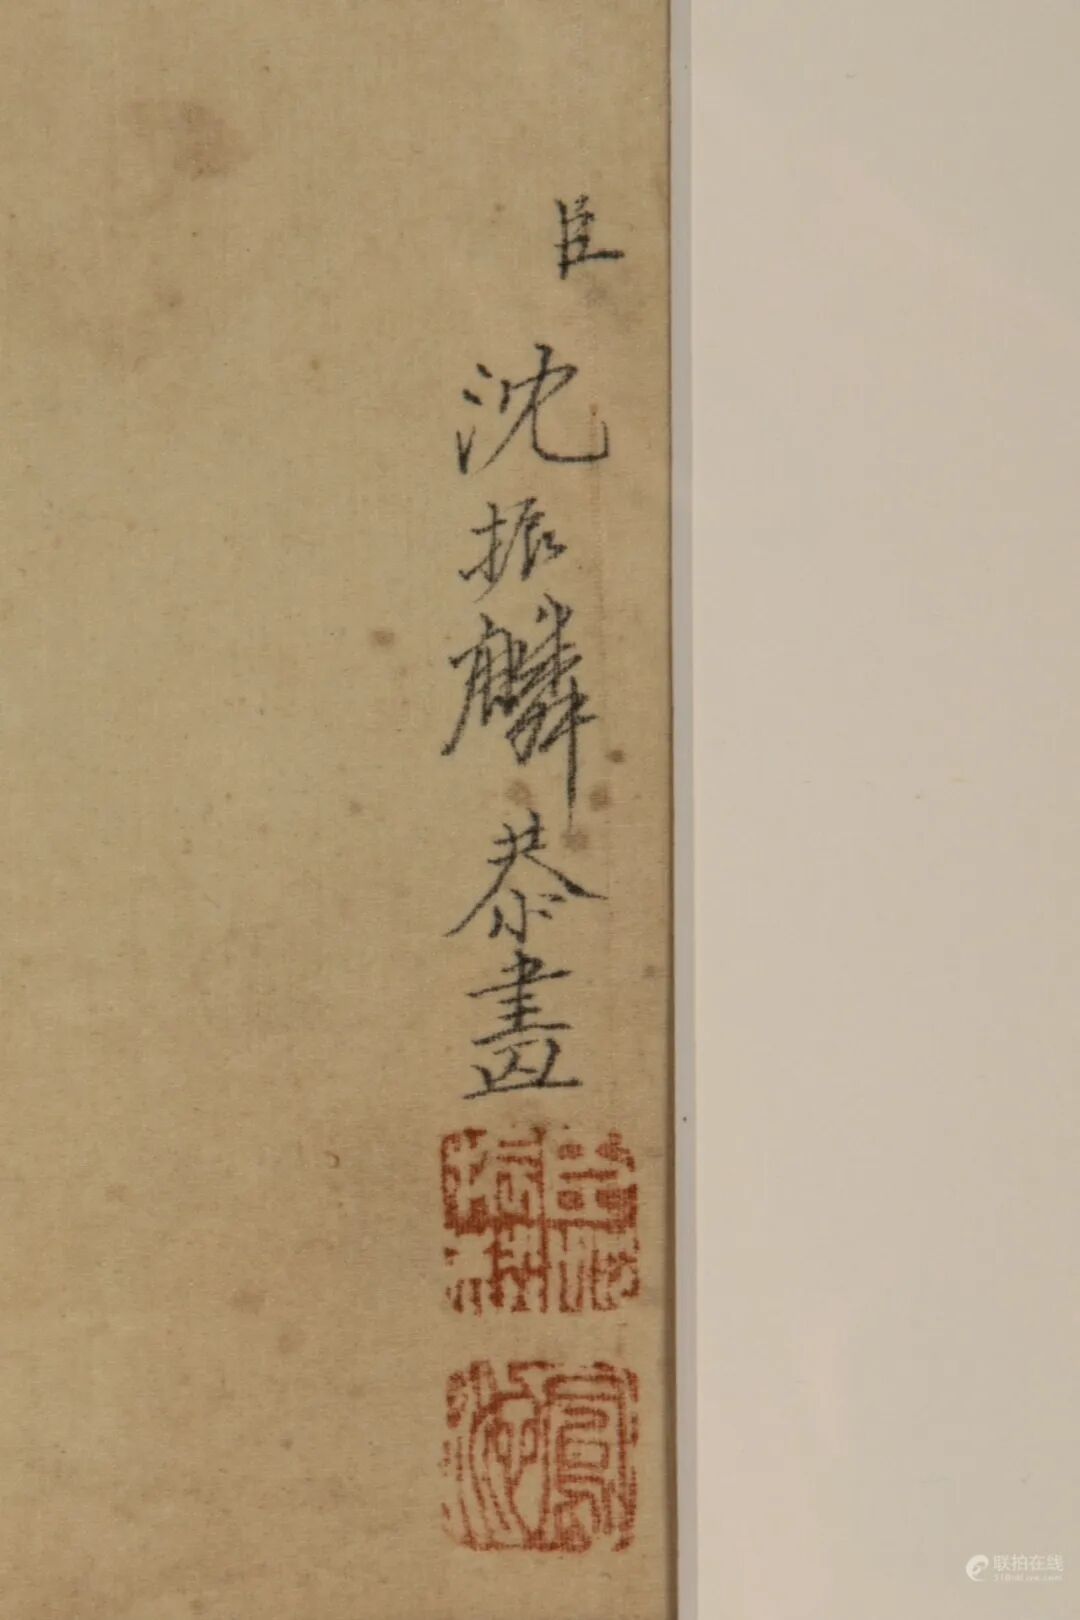 臣
沈振麟恭畫
鳳池
联拍在线